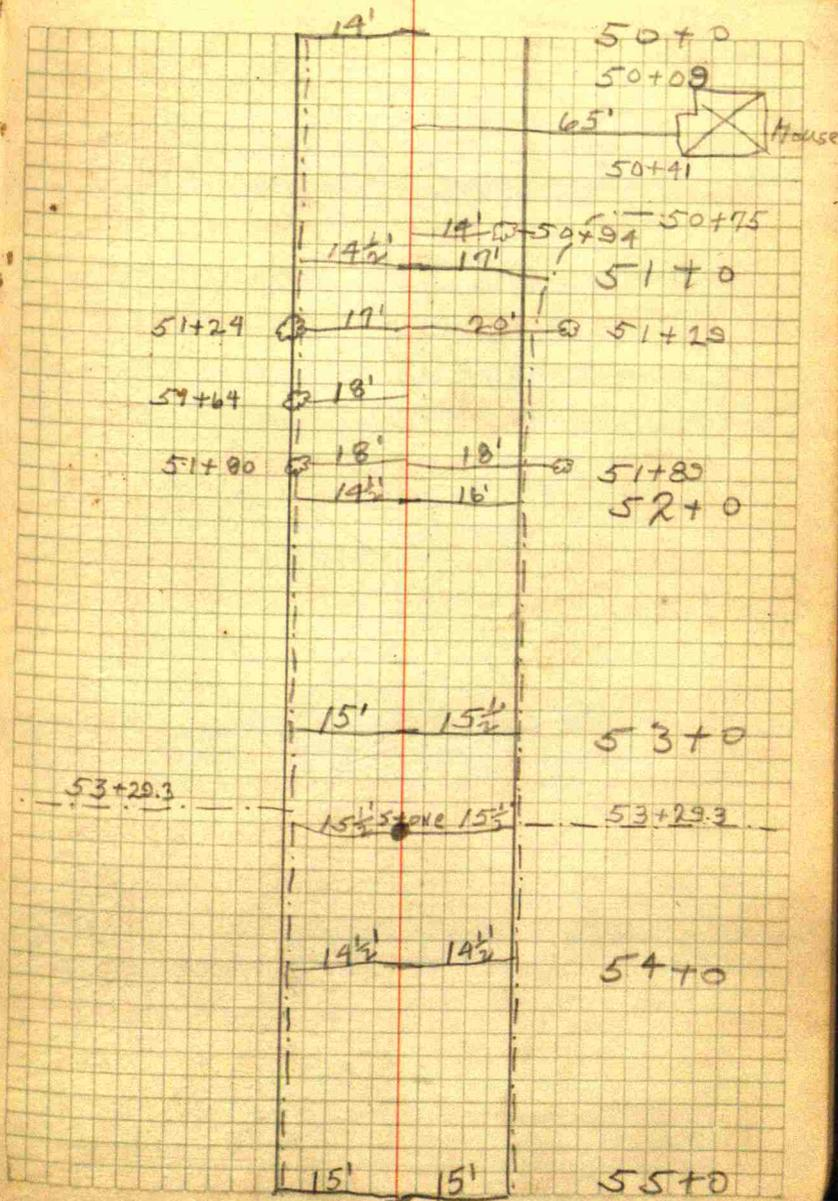 14' 50+0
50+09
65' House
50+41
50+75
14' 50+94
14½' 17' 51+0
51+24 17' 20' 51+29
51+64 18'
51+80 18' 18' 51+89
14½' 16' 52+0
15' 15½' 53+0
53+29.3
15½' Stone 15½' 53+29.3
14½' 14½' 54+0
15' 15' 55+0